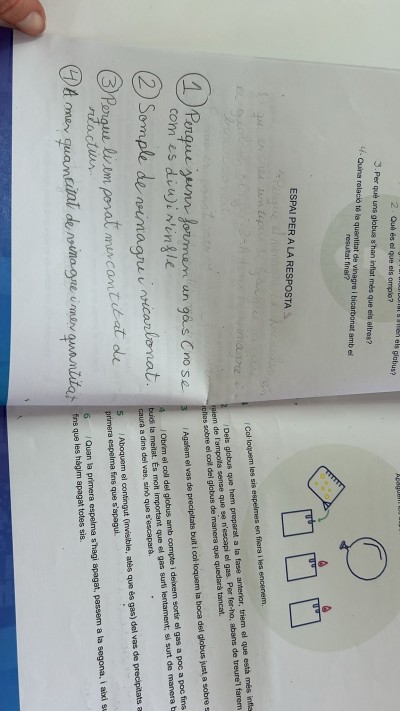 2. Què és el que els omple?
3. Per què uns globus s'han inflat més que els altres?
4. Quina relació té la quantitat de vinagre i bicarbonat amb el
resultat final?
ESPAI PER A LA RESPOSTA
① Perque junts formen un gas (no se
com es diu) i s'infle
② S'omple de vinagre i vicarbonat.
③ Perque li em posat mes cantitat de
ritactius.
④ A mes quantitat de vinagre i mes quantitat
/ Col·loquem les sis espelmes en filera i les encenem.
2 / Dels globus que hem preparat a la fase anterior, triem el que està més
traiem de l'ampolla sense que se n'escapi el gas. Per fer-ho, abans de treure'l farem
sobre el coll del globus de manera que quedarà tancat.
3 / Agafem el vas de precipitats buit i col·loquem la boca del globus just a sobre
4 / Obrim el coll del globus amb compte i deixem sortir el gas a poc a poc fins
buidi la meitat. És molt important que el gas surti lentament; si surt de manera
caurà a dins del vas, sinó que s'escaparà.
5 / Aboquem el contingut (invisible, atès que és gas) del vas de precipitats a
primera espelma fins que s'apagui.
6 / Quan la primera espelma s'hagi apagat, passem a la segona, i així
fins que les hàgim apagat totes sis.